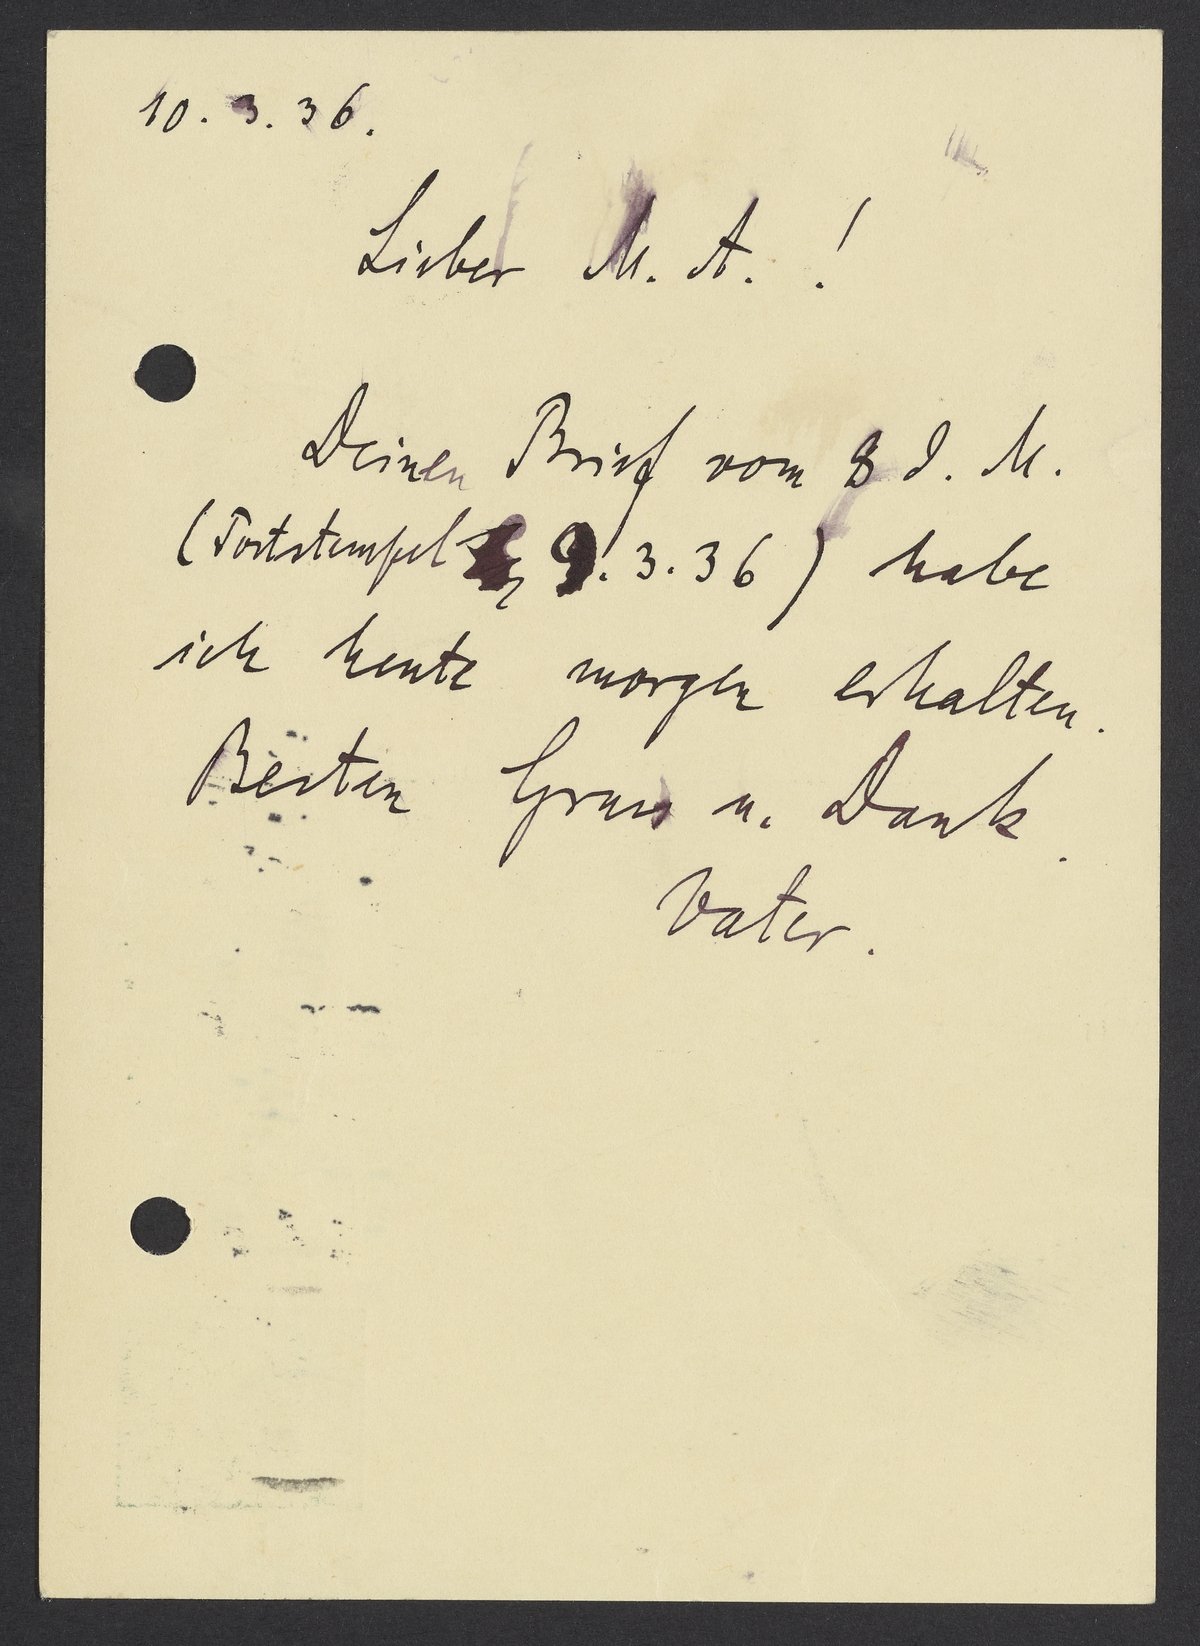 10. 3. 36.
Lieber M. A. !
Deinen Brief vom 8 d. M.
(Poststempel 9. 3. 36) habe
ich heute morgen erhalten.
Besten Gruss u. Dank.
Vater.